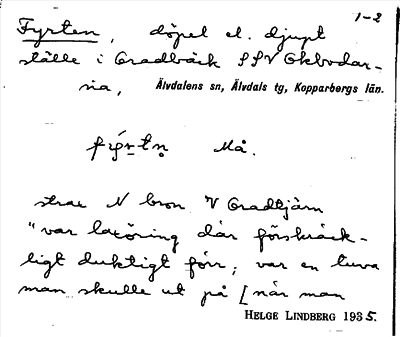 1-2
Fyrten, döpel el. djupt
ställe i Gradbäck SSV Okbodar-
na, Älvdalens sn, Älvdals tg, Kopparbergs län.
Må.
strax N bron V Gradtjärn
"var laxöring där förskräck-
ligt duktigt förr; var en tuva
man skulle ut på [när man
HELGE LINDBERG 1935.